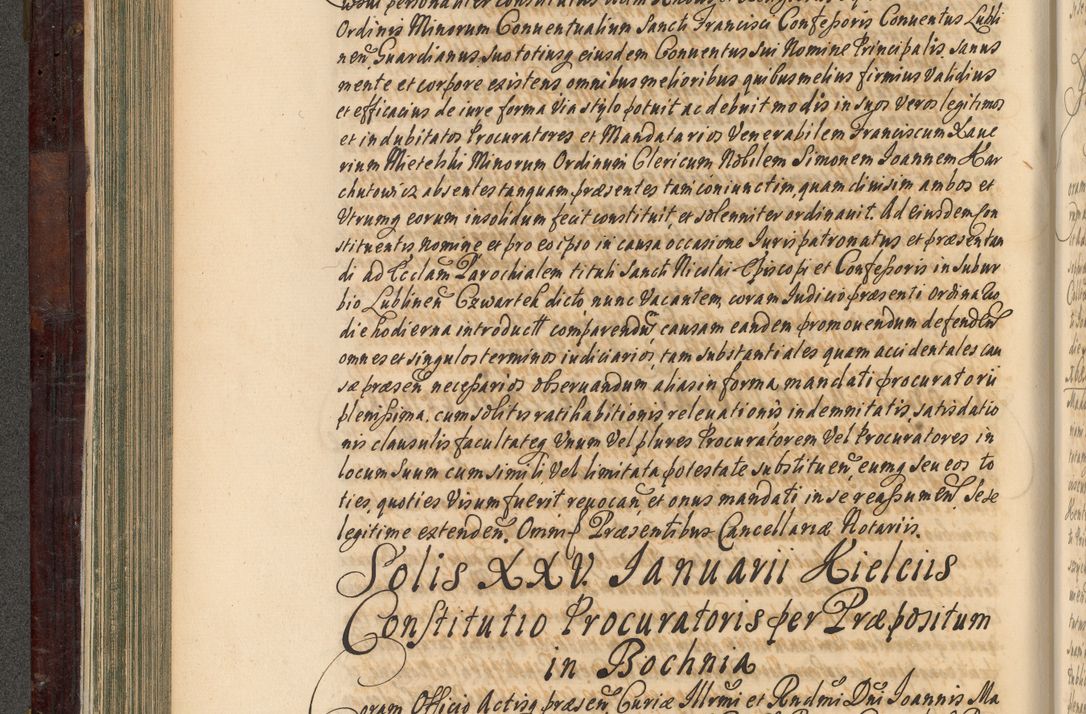 Ordinis Minorum Conuentualium Sancti Francisci Confeßoris Conuentus Lubli
neñ Guardianus, suo totiusq eiusdem Conuentus sui Nomine Principalis, sanus
mente et corpore existens omnibus melioribus quibus melius firmius validius
et efficacius de iure forma via stylo potuit ac debuit modis in suos veros legitimos
et indubitatos Procuratores et Mandatarios Venerabilem Franciscum Xaue
rium Mietelski Minorum Ordinum Clericum Nobilem Simonem Ioannem Kar
chutowicz absentes tanquam præsentes tam coniunctim, quam diuisim ambos et
Vtrumq eorum insolidum fecit constituit, et solenniter ordinauit. Ad eiusdem Con
stituentis nomine et pro eo ipso in causa occasione Iurispatronatus et præsentan
di ad Eccłam Parochialem tituli Sancti Nicolai Episcopi et Confeßoris in subur
bio Lublineñ Czwartek dicto, nunc vacantem, coram Iudicio præsenti Ordinario
die hodierna introducti comparendũ, causam eandem promouendum defendeñ
omnes et singulos terminos iudiciarios, tam substantiales quam accidentales cau
sæ præseñ neceßarios obseruandum, alias in forma mandati procuratorii
pleniſsima. cum solitis ratihabitionis, releuationis, indemnitatis, satisdatio
nis clausulis facultateq Vnum Vel plures Procuratorem Vel Procuratores in
locum suum cum simili, Vel limitata potestate substitueñ eumq seu eos to
ties, quoties Visum fuerit reuocañ, et onus mandati in se reaßumeñ. Sese
legitime extendeñ. Præsentibus Cancellariæ Notariis.
Solis XXV. Ianuarii Kielciis
Constitutio Procuratoris per Præpositum
in Bochnia
Coram Officio Actisq præseñ Curiæ Illrmi et Rndmi Dñi Ioannis Ma